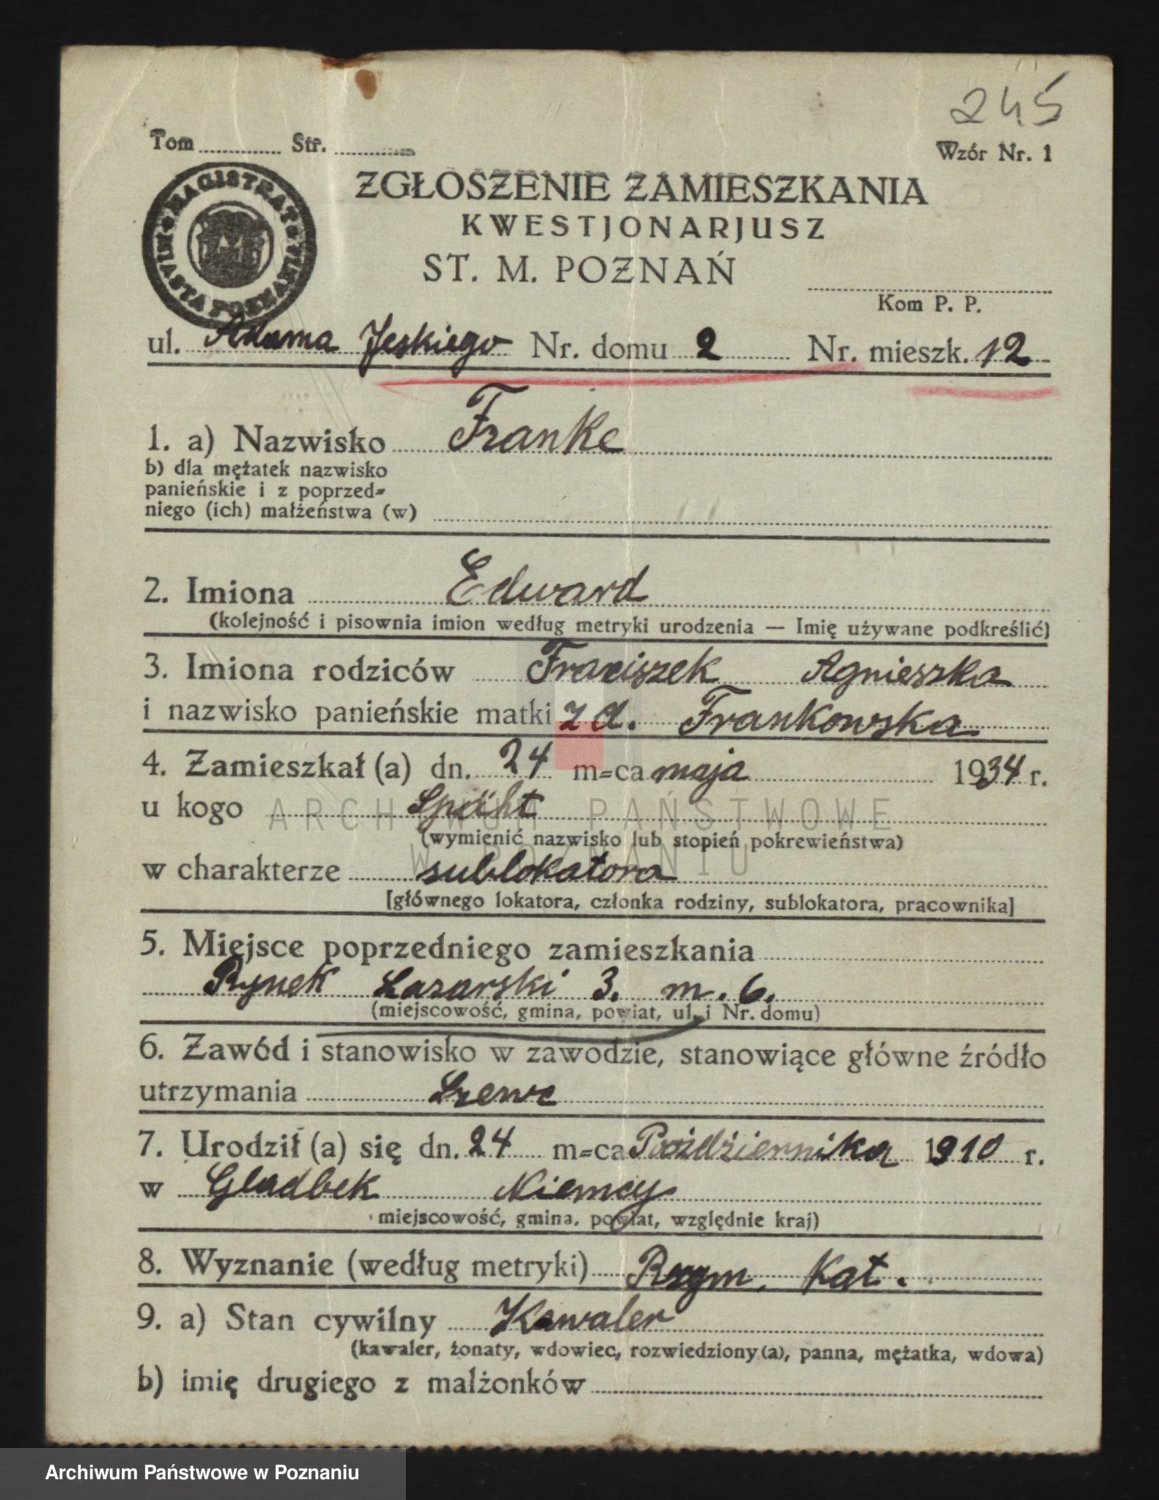 245
Tom ........ Str. ........
Wzór Nr. 1
MAGISTRAT MIASTA POZNANIA
ZGŁOSZENIE ZAMIESZKANIA
KWESTJONARJUSZ
ST. M. POZNAŃ
Kom P. P.
ul. Adama Jeskiego Nr. domu 2 Nr. mieszk. 12
1. a) Nazwisko Franke
b) dla mężatek nazwisko
panieńskie i z poprzed=
niego (ich) małżeństwa (w)
2. Imiona Edward
(kolejność i pisownia imion według metryki urodzenia — Imię używane podkreślić)
3. Imiona rodziców Franciszek Agnieszka
i nazwisko panieńskie matki z d. Frankowska
4. Zamieszkał (a) dn. 24 m=ca maja 1934 r.
u kogo Späht
ARCHIWUM PAŃSTWOWE
(wymienić nazwisko lub stopień pokrewieństwa)
W POZNANIU
w charakterze sublokatora
[głównego lokatora, członka rodziny, sublokatora, pracownika]
5. Miejsce poprzedniego zamieszkania
Rynek Łazarski 3. m. 6.
(miejscowość, gmina, powiat, ul. i Nr. domu)
6. Zawód i stanowisko w zawodzie, stanowiące główne źródło
utrzymania Szewc
7. Urodził (a) się dn. 24 m=ca Października 1910 r.
w Gladbek Niemcy
miejscowość, gmina, powiat, względnie kraj)
8. Wyznanie (według metryki) Rzym. Kat.
9. a) Stan cywilny Kawaler
(kawaler, żonaty, wdowiec, rozwiedziony (a), panna, mężatka, wdowa)
b) imię drugiego z małżonków
Archiwum Państwowe w Poznaniu